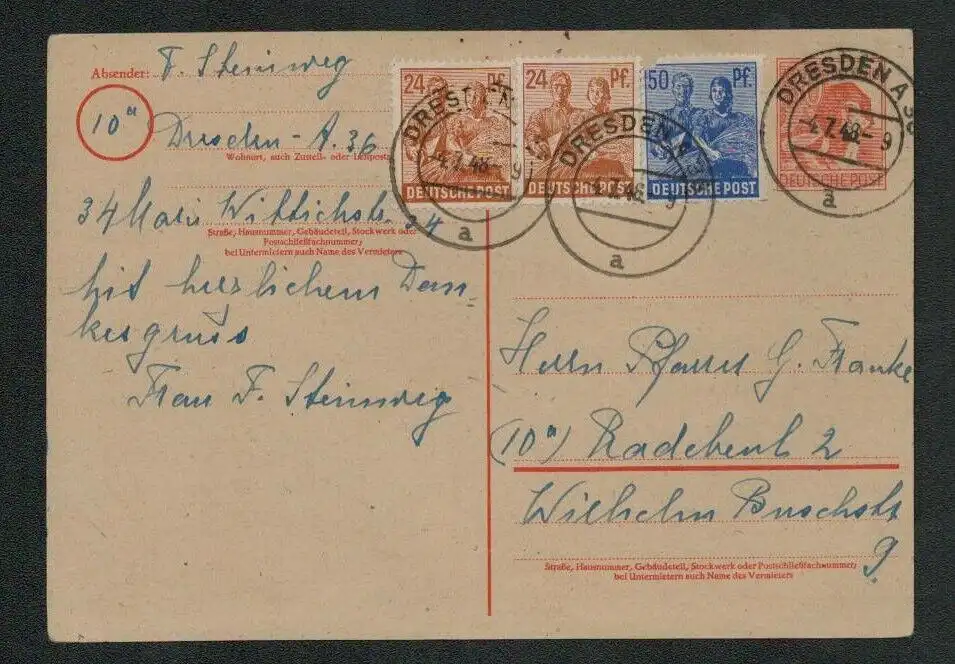 Absender: F. Steinweg
10a
Dresden-A. 36
Wohnort, auch Zustell- oder Leitpostamt
34 Marie Wittichstr. 34
Straße, Hausnummer, Gebäudeteil, Stockwerk oder
Postschließfachnummer;
bei Untermietern auch Name des Vermieters
Mit herzlichem Dan-
kesgruss
Frau F. Steinweg
24 Pf.
DEUTSCHE POST
24 Pf.
DEUTSCHE POST
50 Pf.
DEUTSCHE POST
DEUTSCHE POST
DRESDEN
4.7.48-9
a
DRESDEN
9
a
DRESDEN A 36
-4.7.48-9
a
Herrn Pfarrer G. Franke
(10a) Radebeul 2
Wilhelm Buschstr.
9.
Straße, Hausnummer, Gebäudeteil, Stockwerk oder Postschließfachnummer;
bei Untermietern auch Name des Vermieters